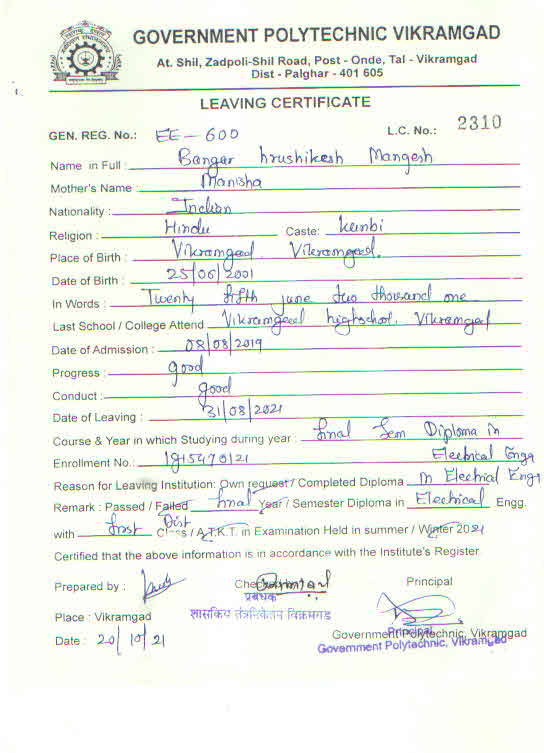 GOVERNMENT POLYTECHNIC VIKRAMGAD
At. Shil, Zadpoli-Shil Road, Post - Onde, Tal - Vikramgad
Dist - Palghar - 401 605
LEAVING CERTIFICATE
GEN. REG. No.: EE-600 L.C. No.: 2310
Name in Full : Bangar hrushikesh Mangesh
Mother's Name : Manisha
Nationality : Indian
Religion : Hindu Caste: kunbi
Place of Birth : Vikramgad. Vikramgad.
Date of Birth : 25/06/2001
In Words : Twenty fifth june two thousand one
Last School / College Attend Vikramgad highschool, Vikramgad
Date of Admission : 08/08/2019
Progress : good
Conduct : good
Date of Leaving : 31/08/2021
Course & Year in which Studying during year : final Sem Diploma in
Electrical Engg
Enrollment No.: 1915470121
Reason for Leaving Institution: Own request / Completed Diploma in Electrical Engg
Remark : Passed / Failed final Year / Semester Diploma in Electrical Engg.
with first Dist Class / A.T.K.T. in Examination Held in summer / Winter 2021
Certified that the above information is in accordance with the Institute's Register
Prepared by : Checked by Principal
प्रबंधक
Place : Vikramgad शासकिय तंत्रनिकेतन विक्रमगड
Date : 20/10/21 Government Polytechnic, Vikramgad
Principal
Government Polytechnic, Vikramgad